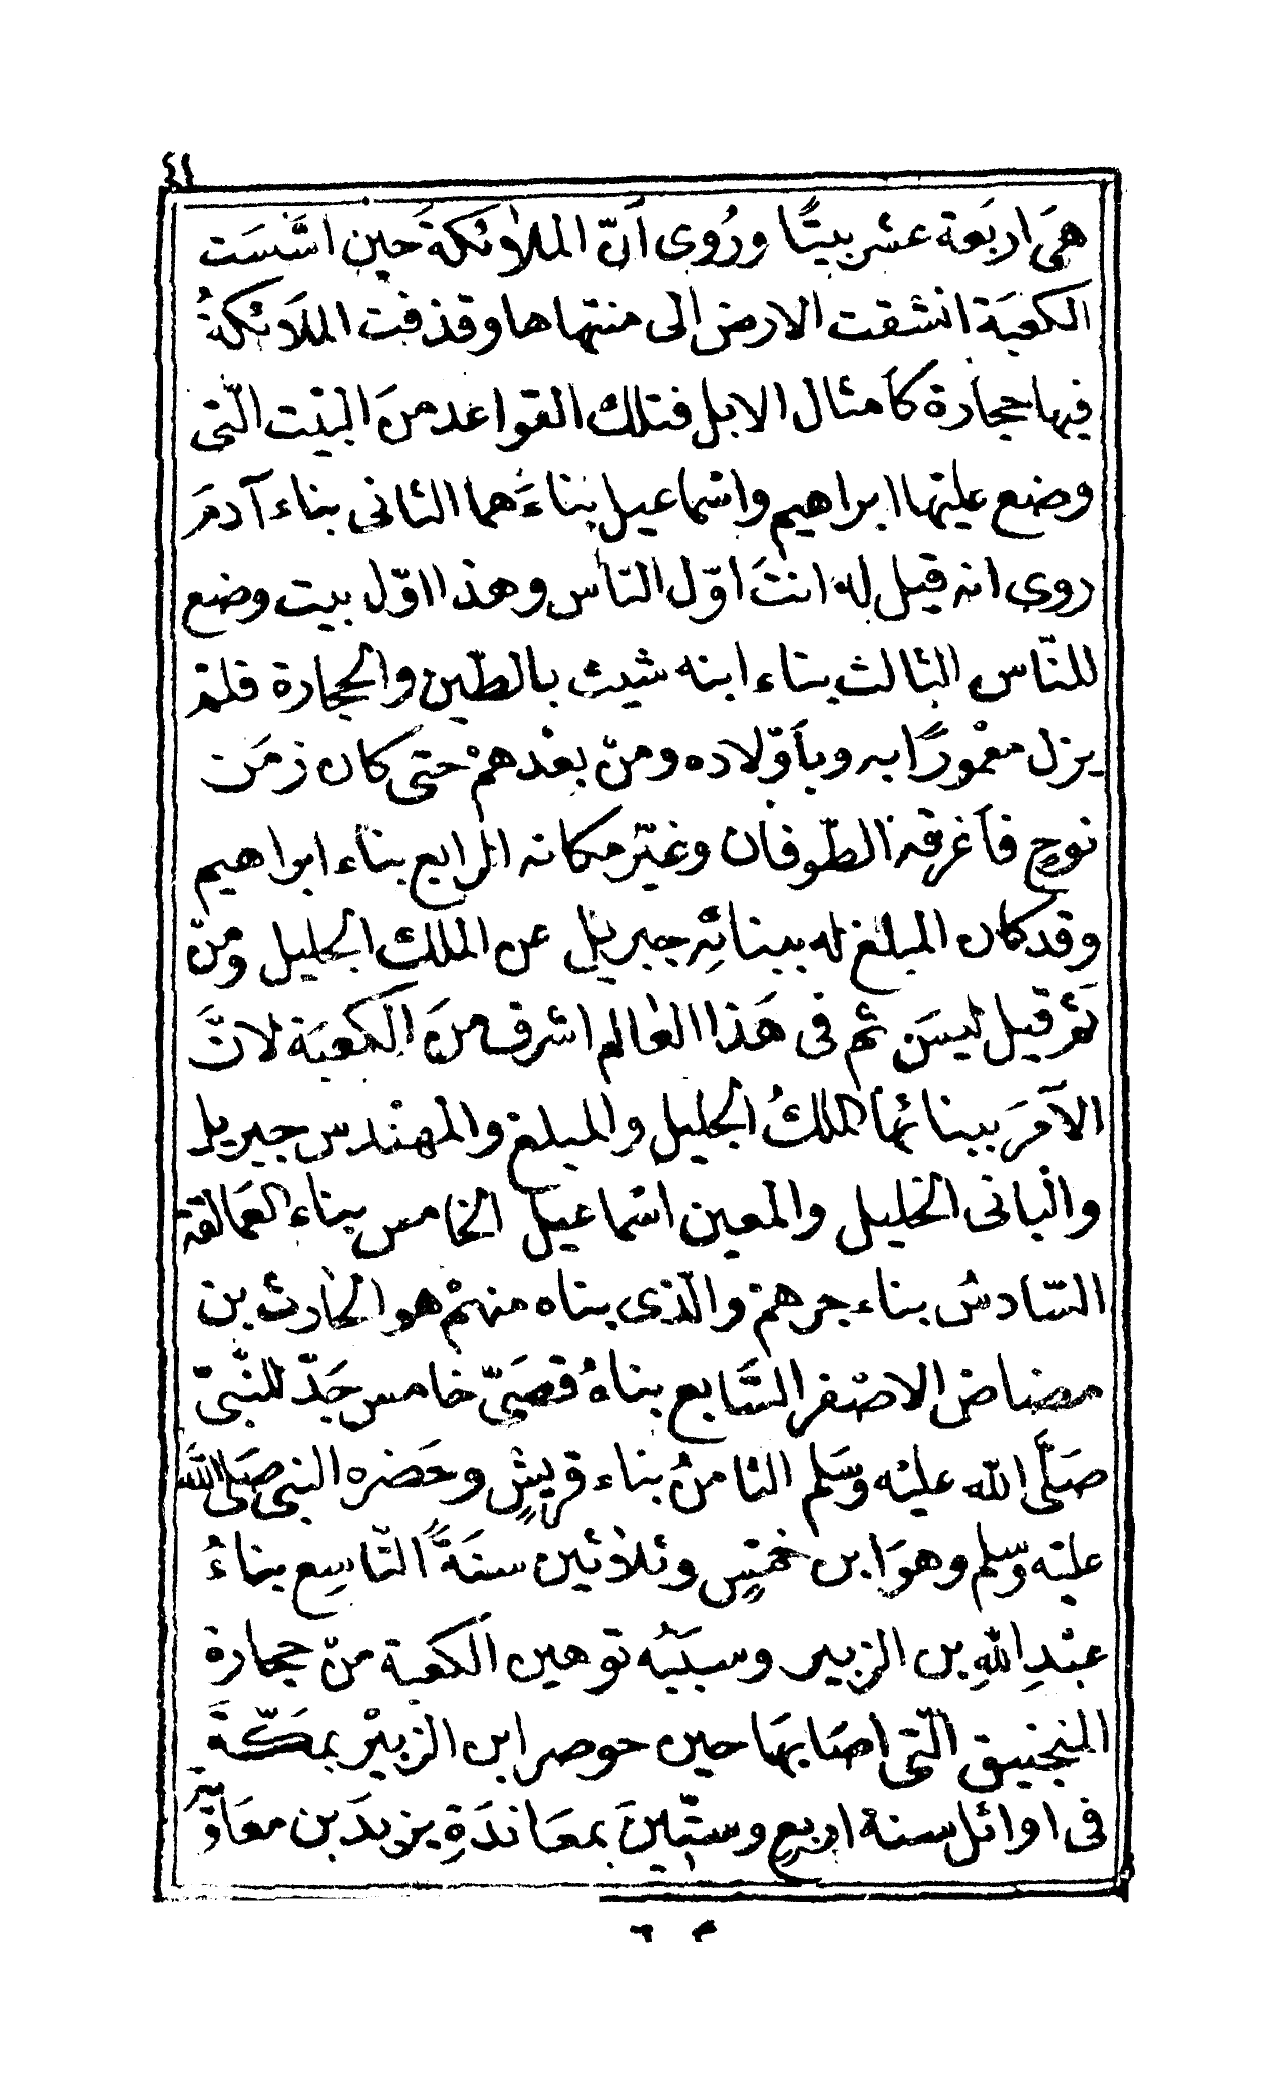 ٤١
هيَ اربَعة عشر بيتًا ورُوى اَنّ الملائكةَ حين اسَّسَت
الكعبَة انشقت الارض الى منتهاها وقذفت الملَائكةُ
فيها حجارة كاَمثال الابل فتلك القواعد منَ البيْت الّتى
وضع عليْها ابراهيم واسْماعيل بناءَهما الثانى بناء آدمَ
روى انه قيل له انتَ اوّل النّاس وهذا اوّل بيت وضع
للنّاس الثالث بناء ابنه شيث بالطّين والحجارة فلمْ
يزل معْمورًا به وباَوْلاده ومنْ بعْدهمْ حتى كان زمَن
نوحٍ فاَغرقهْ الطّوفان وغيّر مكانه الرابع بناء ابراهيم
وقد كان المبلغ له ببنائهِ جبريل عن الملك الجليل ومنْ
ثمَّ قيل ليْسَ ثم فى هَذا العالم اشرف منَ الكعبَة لانَّ
الآمرَ ببنائها الملكُ الجليل والمبلغ والمهنْدس جبريل
والْبانى الخليل والمعين اسْماعيل الخامس بناء العمالقة
السّادسُ بناء جرهمْ والّذى بناه منهمْ هو الحارث بن
مضاض الاصْغر السَّابع بناهُ قصَىّ خامس جَدّ للنّبىّ
صَلّى الله عليْه وسَلم الثامنُ بناء قريشٍ وحَضره النبى صَلى اللهَ
عليْه وسلم وهوَ ابن خمْسٍ وثلاثين سنَةً التّاسِع بناءُ
عبْدِ اللهِ بن الزبير وسبَبُه توهين الكعبة منْ حجارة
المنجنيق الّتى اصَابتهَا حين حوصر ابن الزبيْر بمكّةَ
فى اوائل سنة اربعٍ وستّينَ بمعَاندَةِ يزيدَ بن معَاويَة
٣ ٦